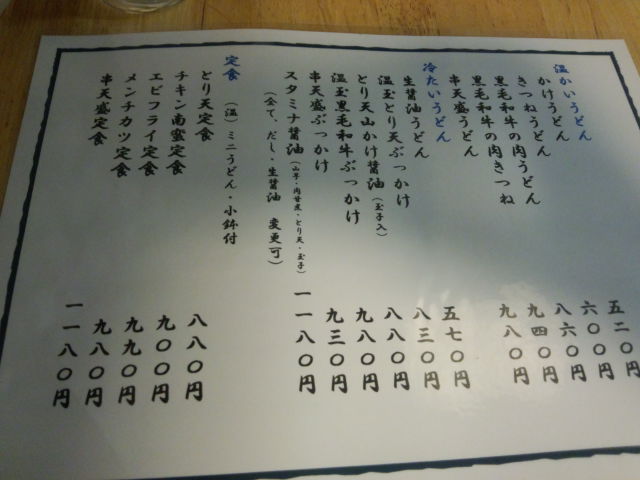 温かいうどん
かけうどん 五二〇円
きつねうどん 六〇〇円
黒毛和牛の肉うどん 八六〇円
黒毛和牛の肉きつね 九四〇円
串天盛うどん 九八〇円
冷たいうどん
生醤油うどん 五七〇円
温玉とり天ぶっかけ 八三〇円
とり天山かけ醤油(玉子入) 八八〇円
温玉黒毛和牛ぶっかけ 九八〇円
串天盛ぶっかけ 九三〇円
スタミナ醤油(山芋・肉甘煮・とり天・玉子) 一一八〇円
(全て、だし・生醤油 変更可)
定食 (温)ミニうどん・小鉢付
とり天定食 八八〇円
チキン南蛮定食 九〇〇円
エビフライ定食 九九〇円
メンチカツ定食 九八〇円
串天盛定食 一一八〇円